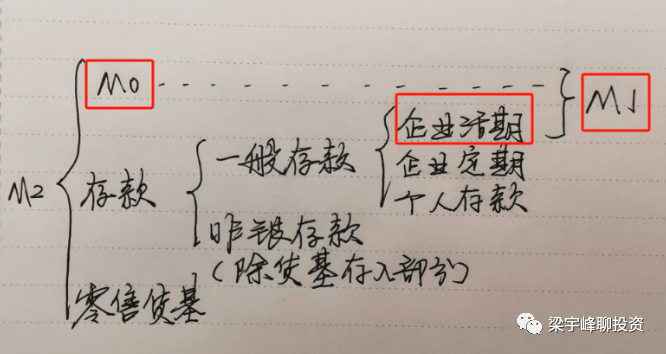 M0
M1
企业活期
一般存款
企业定期
M2
存款
个人存款
非银存款
(除货基存入部分)
零售货基
梁宇峰聊投资